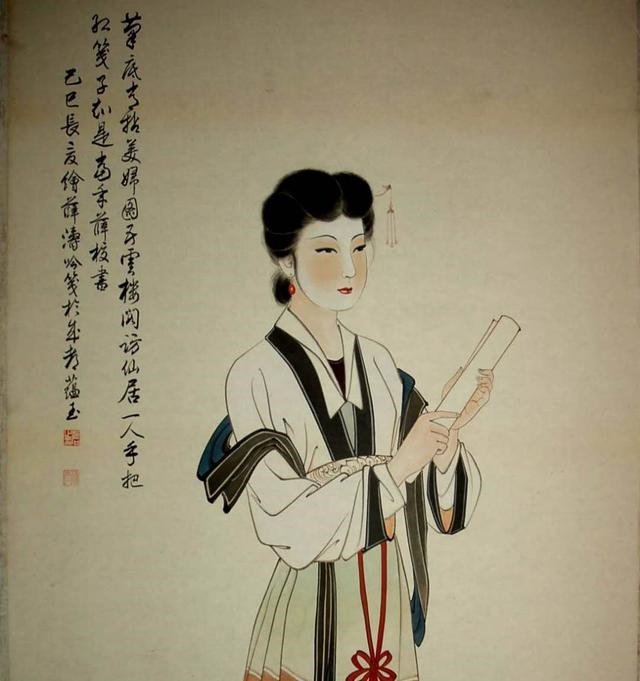 筆底美婦圖雲樓閣訪仙居一人手把
紅箋子知是當年薛校書
己巳長夏繪薛濤吟箋於成都蘊玉